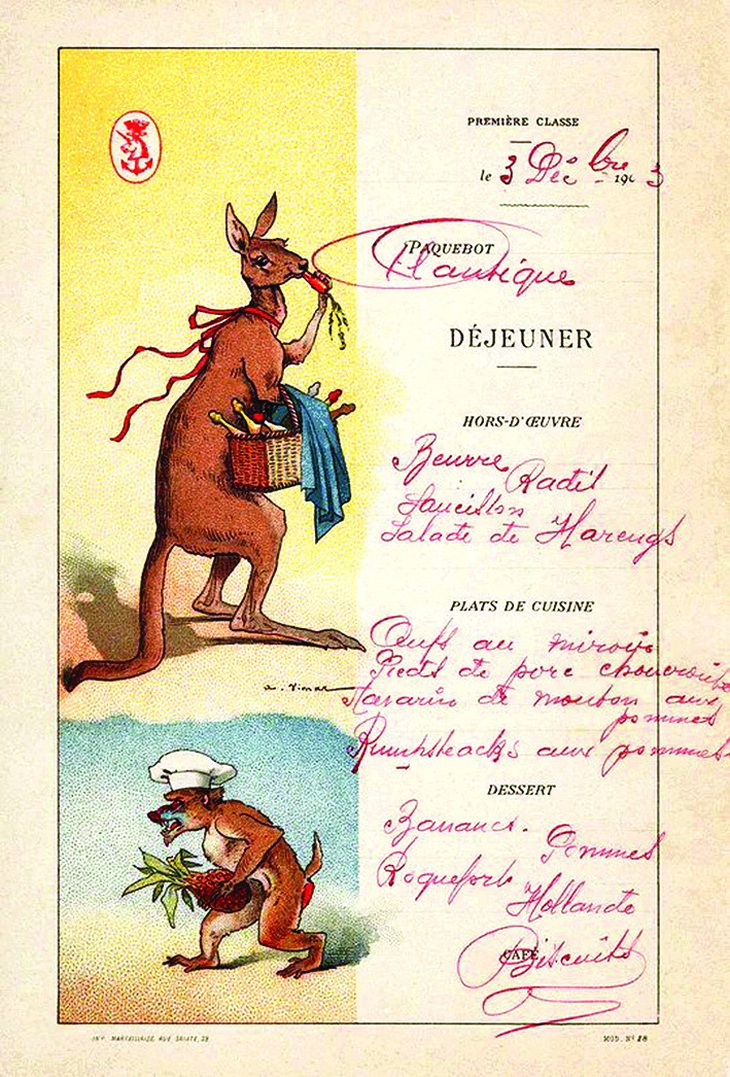 PREMIÈRE CLASSE
le 3 Déc bre 1903
PAQUEBOT
DÉJEUNER
HORS-D'ŒUVRE
Beurre Radis
Saucisson
Salade de Harengs
PLATS DE CUISINE
Œufs au miroir
Pieds de porc choucroute
Navarin de mouton aux
pommes
Rumpsteacks aux pommes
A. Vimar
DESSERT
Bananes. Pommes
Roquefort
Hollande
CAFÉ
Biscuits
IMP. MARSEILLAISE, RUE SAINTE, 39
MOD. Nº 28